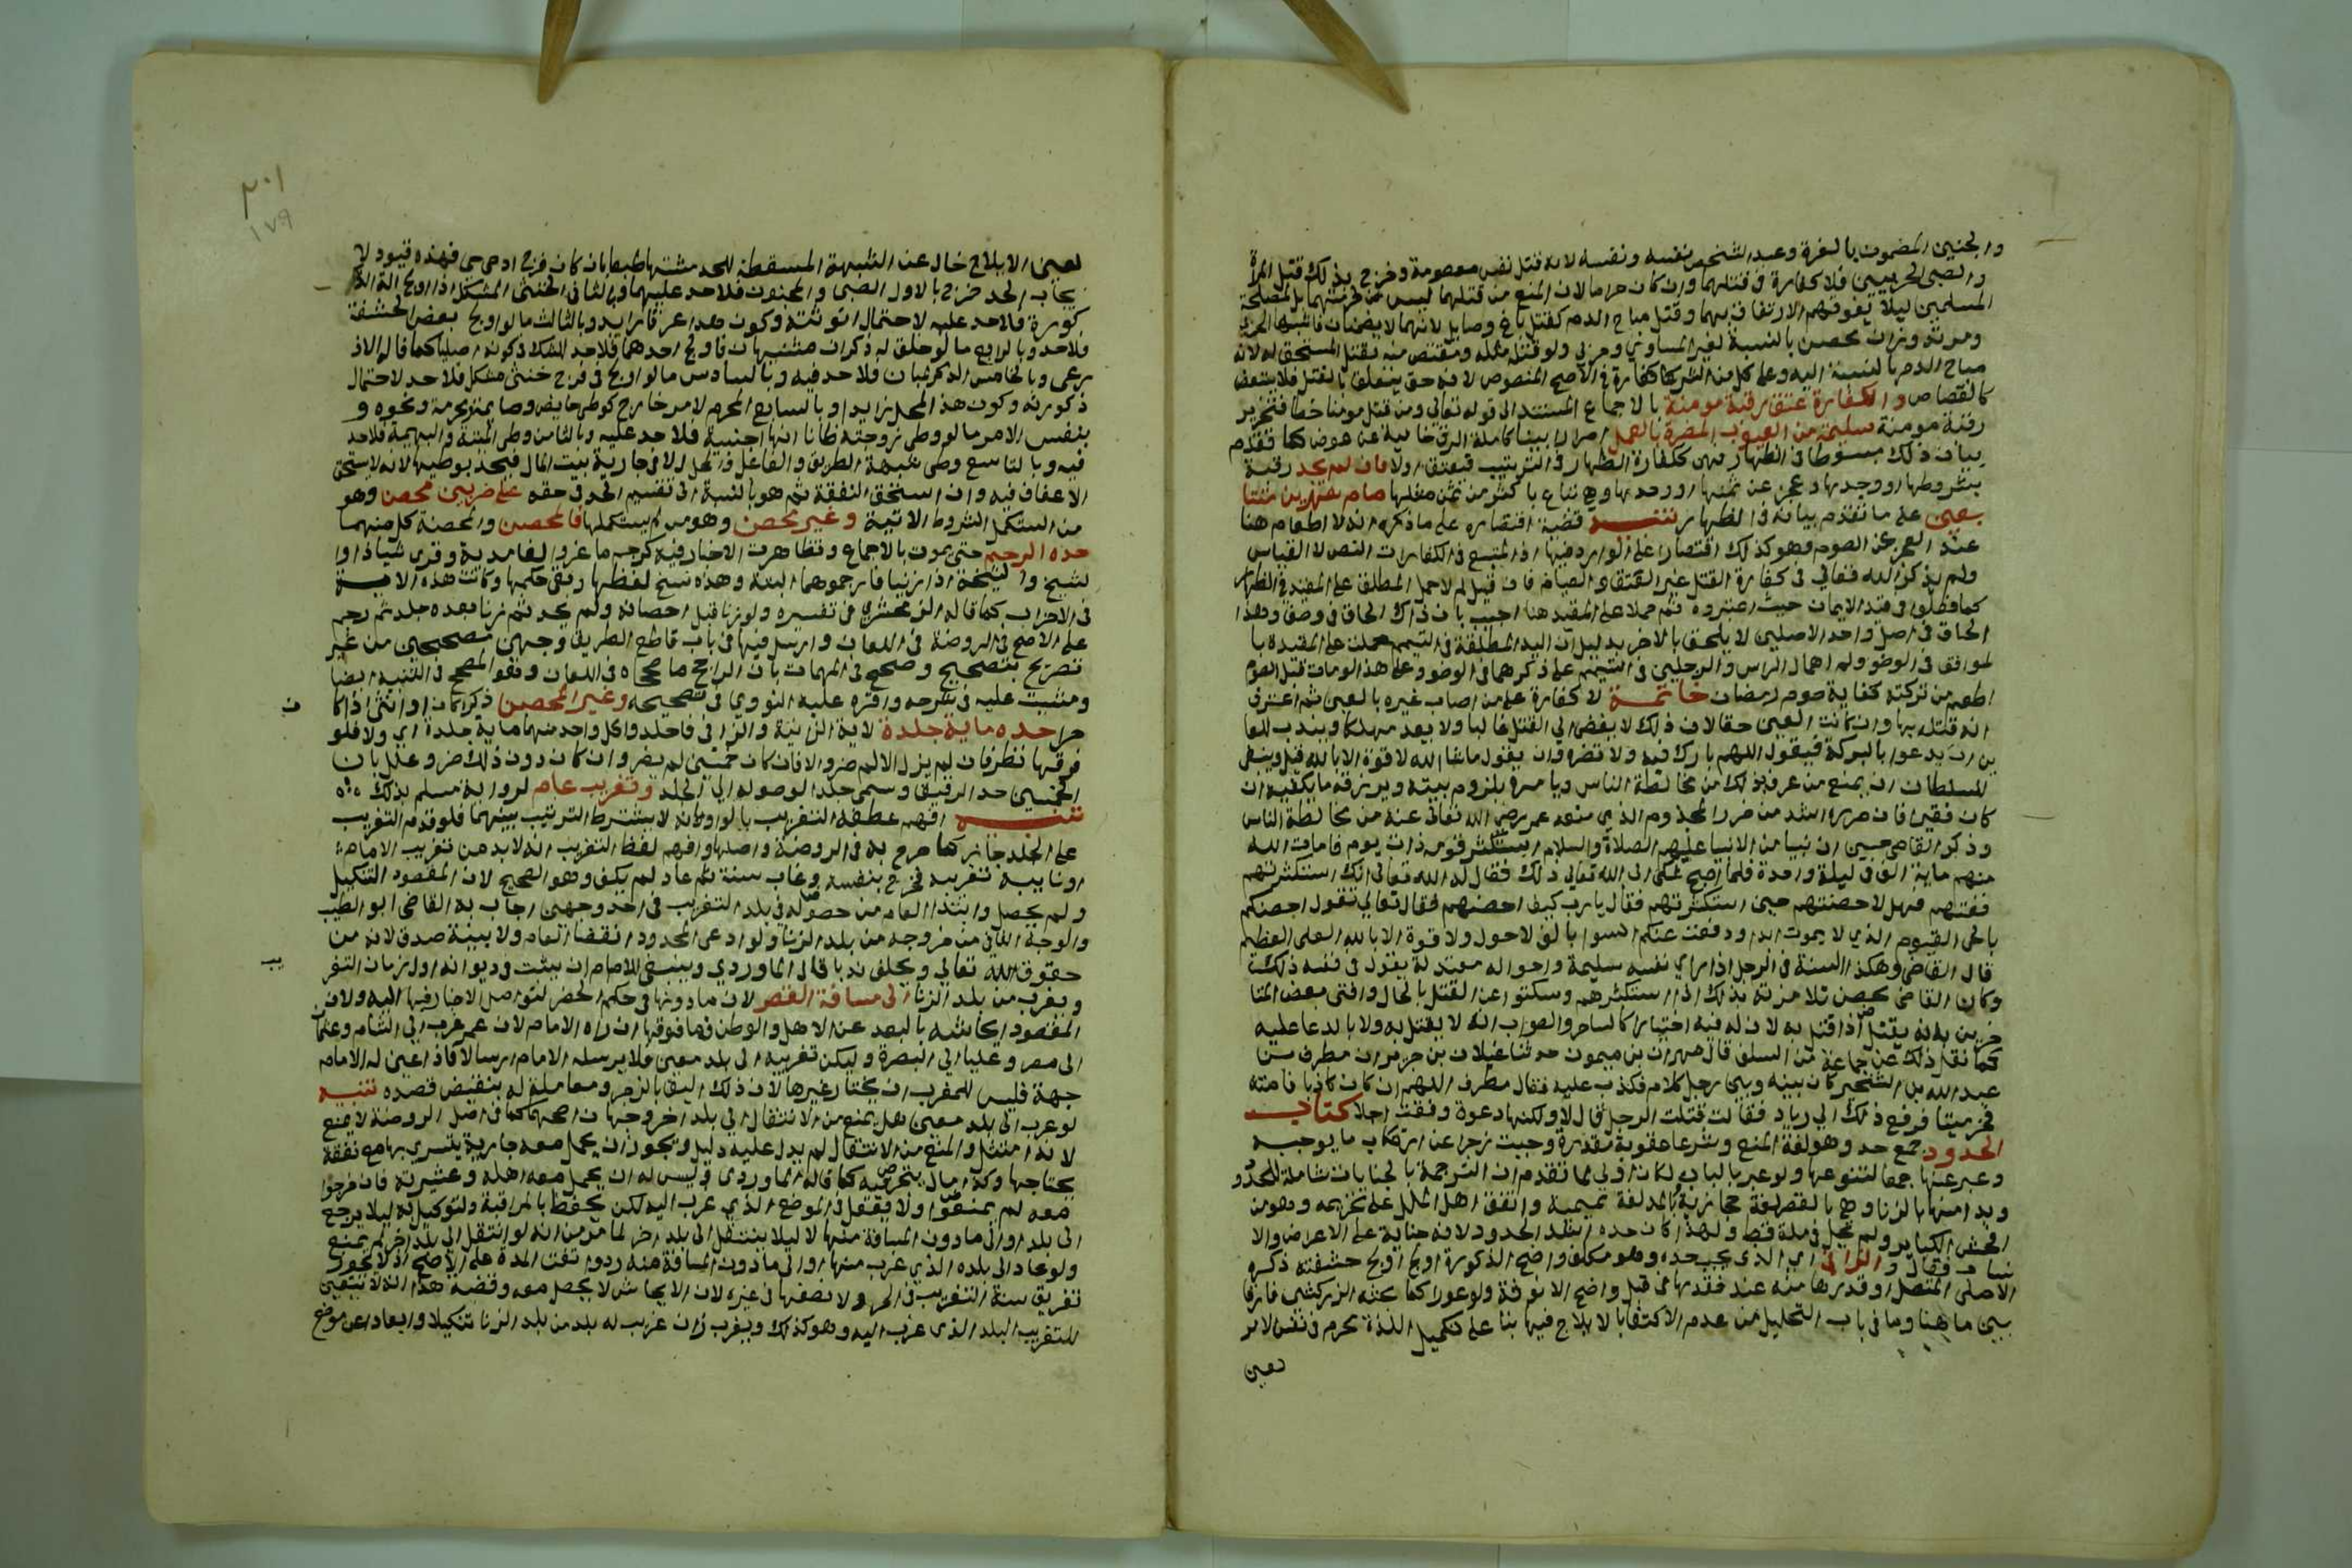 والجنين المضمون بالغرة وعبد الشخص نفسه ونفسه لانه قتل نفس معصومة وخرج بذلك قتل المراة
والصبي الحربيين فلا كفارة في قتلهما وان كان حراما لان المنع من قتلهما ليس لحرمتهما بل لمصلحة
المسلمين ليلا يفوتهم الارتفاق بهما وقتل مباح الدم كقتل باغ وصايل لانهما لا يضمنان فاشبها الحربي
ومرتد وزان محصن بالنسبة لغير المساوي وحربي ولو قتله مثله ومقتص منه بقتل المستحق له لانه
مباح الدم بالنسبة اليه وعلى كل من الشركا كفارة في الاصح المنصوص لانه حق يتعلق بالقتل فلا يتبعض
كالقصاص والكفارة عتق رقبة مومنة بالاجماع المستند الى قوله تعالى ومن قتل مومنا خطا فتحرير
رقبة مومنة سليمة من العيوب المضرة بالعمل اضرارا بينا كاملة الرق خالية عن عوض كما تقدم
بيان ذلك مبسوطا في الظهار فهي ككفارة الظهار في الترتيب فيعتق اولا فان لم يجد رقبة
بشروطها او وجدها وعجز عن ثمنها او وجدها وهي تباع باكثر من ثمن مثلها صام شهرين متتا
بعين على ما تقدم بيانه في الظهار تنبيه قضية اقتصاره على ما ذكره انه لا اطعام هنا
عند العجز عن الصوم وهو كذلك اقتصارا على الوارد فيها اذ المتبع في الكفارات النص لا القياس
ولم يذكر الله تعالى في كفارة القتل غير العتق والصيام فان قيل لم لا حمل المطلق على المقيد في الظهار
كما فعلوا في قيد الايمان حيث اعتبروه ثم حملا على المقيد هنا اجيب بان ذاك الحاق في وصف وهذا
الحاق في اصل واحد الاصلين لا يلحق بالاخر بدليل ان اليد المطلقة في التيمم حملت على المقيدة با
لمرافق في الوضو ولم اهمال الراس والرجلين في التيمم على ذكرهما في الوضو وعلى هذا لو مات قبل الصوم
اطعم من تركته كفاية صوم رمضان خاتمة لا كفارة على من اصاب غيره بالعين ثم اعترف
انه قتله بها وان كانت العين حقا لان ذلك لا يفضي الى القتل غالبا ولا يعد مهلكا ويندب للعا
ين ان يدعوا بالبركة فيقول اللهم بارك فيه ولا تضره وان يقول ما شا الله لا قوة الا بالله قيل وينبغي
للسلطان ان يمنع من عرف بذلك من مخالطة الناس ويامره بلزوم بيته ويرزقه ما يكفيه ان
كان فقيرا فان ضرره اشد من ضرر المجذوم الذي منعه عمر رضي الله تعالى عنه من مخالطة الناس
وذكر القاضي حسين ان نبيا من الانبيا عليهم الصلاة والسلام استكثر قومه ذات يوم فامات الله
منهم ماية الف في ليلة واحدة فلما اصبح شكى الى الله تعالى ذلك فقال له الله تعالى انك استكثرتهم
فعنتهم فهل لا حصنتهم حين استكثرتهم فقال يارب كيف احصنهم فقال تعالى تقول احصنكم
بالحي القيوم الذي لا يموت ابدا ودفعت عنكم السوا بالف لا حول ولا قوة الا بالله العلي العظيم
قال القاضي وهكذا السنة في الرجل اذا راي نفسه سليمة واحواله معتدلة يقول في نفسه ذلك
وكان القاضي يحصن تلامذته بذلك اذا استكثرهم وسكتوا عن القتل بالحال وافتى بعض المتا
خرين بانه يقتل اذا قتل به لان له فيه اختيارا كالساحر والصواب انه لا يقتل به ولا بالدعا عليه
كما نقل ذلك عن جماعة من السلف قال مهران بن ميمون حدثنا غيلان بن جرير ان مطرف بن
عبد الله بن الشخير كان بينه وبين رجل كلام فكذب عليه فقال مطرف اللهم ان كان كاذبا فامته
فخر ميتا فرفع ذلك الى زياد فقالت قتلت الرجل قال لا ولكنها دعوة وفقت اجلا كتاب
الحدود جمع حد وهو لغة المنع وشرعا عقوبة مقدرة وجبت زجرا عن ارتكاب ما يوجبه
وعبر عنها جمعا لتنوعها ولو عبر بالباب لكان اولى لما تقدم ان الترجمة بالجنايات شاملة للحدود
وبدا منها بالزنا وهو بالقصر لغة حجازية وبالمد لغة تميمية واتفق اهل الملل على تحريمه وهو من
افحش الكباير ولم تحل في ملة قط ولهذا كان حده اشد الحدود لانه جناية على الاعراض والا
نساب فقال والزاني اي الذي يجب حده وهو مكلف واضح الذكورة اولج حشفته ذكره
الاصلي المتصل او قدرها منه عند فقدها في قبل واضح الانوثة ولو غورا كما بحثه الزركشي فارقا
بين ما هنا وما في باب التحليل من عدم الاكتفا بالايلاج فيها بنا على تكميل اللذة محرم في نفس الامر
لعين
٢٠١
١٧٩
لعين الايلاج خال عن الشبهة المسقطة للحد مشتها طبعا بان كان فرج ادمي حي فهذه قيود لا
يجاب الحد خرج بالاول الصبي والمجنون فلا حد عليهما وبالثاني الخنثى المشكل اذا اولج الة الذ
كورة فلا حد عليه لاحتمال انوثته وكون هذا عرقا زايدا وبالثالث ما لو اولج بعض الحشفة
فلا حد وبالرابع ما لو خلق له ذكران مشتبهان فاولج احدهما فلا حد للشك في كونه اصليا كما قاله الاذ
رعي وبالخامس الذكر المبان فلا حد فيه وبالسادس ما لو اولج في فرج خنثى مشكل فلا حد لاحتمال
ذكورته وكون هذا المحل زايدا وبالسابع المحرم لامر خارج كوطي حايض وصايمة ومحرمة ونحوه و
بنفس الامر ما لو وطي زوجته ظانا انها اجنبية فلا حد عليه وبالثامن وطي الميتة والبهيمة فلا حد
فيه وبالتاسع وطي شبهة الطريق والفاعل والمحل الا في جارية بيت المال فيحد بوطيها لانه لا يستحق
الاعفاف فيه وان استحق النفقة ثم هو بالنسبة الى تقسيم الحد في حقه على ضربين محصن وهو
من استكمل الشروط الاتية وغير محصن وهو من لم يستكملها فالمحصن والمحصنة كل منهما
حده الرجم حتى يموت بالاجماع وتظاهرت الاخبار فيه كرجم ماعز والغامدية وقري شاذا وا
لشيخ والشيخة اذا زنيا فارجموهما البتة وهذه نسخ لفظها وبقي حكمها وكانت هذه الاية
في الاحزاب كما قاله الزمخشري في تفسيره ولو زنا قبل احصانه ولم يحد ثم زنا بعده جلد ثم رجم
على الاصح في الروضة في اللعان وارسل فيها في باب قاطع الطريق وجهين مصححين من غير
تصريح بتصحيح وصحح في المهمات بان الراجح ما صححاه في اللعان وهو المصحح في التنبيه ايضا
ومشيت عليه في شرحه واقره عليه النووي في تصحيحه وغير المحصن ذكرا كان او انثى اذا كا
ن
حرا حده ماية جلدة لاية الزانية والزاني فاجلدوا كل واحد منهما ماية جلدة اي ولا فلو
فرقها نظر فان لم يزل الالم ضر والا فان كان خمسين لم يضر وان كان دون ذلك ضر وعلل بان
الخمسين حد الرقيق وسمي جلدا لوصوله الى الجلد وتغريب عام لرواية مسلم بذلك
تنبيه افهم عطفه التغريب بالواو انه لا يشترط الترتيب بينهما فلو قدم التغريب
على الجلد جاز كما صرح به في الروضة واصلها وافهم لفظ التغريب انه لا بد من تغريب الامام
او نايبه تغريبه فخرج بنفسه وغاب سنة ثم عاد لم يكف وهو الصحيح لان المقصود التنكيل
ولم يحصل وابتدا العام من حصوله في بلد التغريب في احد وجهين اجاب به القاضي ابو الطيب
والوجه الثاني من خروجه من بلد الزنا ولو ادعى المحدود انقضا العام ولا بينة صدق لانه من
حقوق الله تعالى ويحلف ندبا قال الماوردي وينبغي للامام ان يثبت في ديوانه اول زمان التغر
يب
ويغرب من بلد الزنا الى مسافة القصر لان ما دونها في حكم الحضر لتواصل الاخبار فيها اليه ولان
المقصود ايحاشه بالبعد عن الاهل والوطن فما فوقها ان راه الامام لان عمر غرب الى الشام وعثمان
الى مصر وعليا الى البصرة وليكن تغريبه الى بلد معين فلا يرسله الامام ارسالا فاذا عين له الامام
جهة فليس للمغرب ان يختار غيرها لان ذلك اليق بالزجر ومعاملة له بنقيض قصده تنبيه
لو غرب الى بلد معين هل يمنع من الانتقال الى بلد اخر وجهان اصحهما كما في اصل الروضة لا يمنع
لانه امتثل والمنع من الانتقال لم يدل عليه دليل ويجوز ان يحمل معه جارية يتسرى بها مع نفقة
يحتاجها وكذا مال يتجر فيه كما قاله الماوردي وليس له ان يحمل معه اهله وعشيرته فان خرجوا
معه لم يمنعوا ولا يعتقل في الموضع الذي غرب اليه لكن يحفظ بالمراقبة والتوكيل به ليلا يرجع
الى بلده او الى ما دون المسافة منها لا ليلا ينتقل الى بلد اخر لما مر من انه لو انتقل الى بلد اخر لم يمنع
ولو عاد الى بلده الذي غرب منها او الى ما دون المسافة منه رد واستؤنفت المدة على الاصح اذ لا يجوز
تفريق سنة التغريب في الحر ولا نصفها في غيره لان الايحاش لا يحصل معه وقضية هذا انه لا يتعين
للتغريب البلد الذي غرب اليه وهو كذلك ويغرب زان غريب له بلد من بلد الزنا تنكيلا وابعادا عن موضع